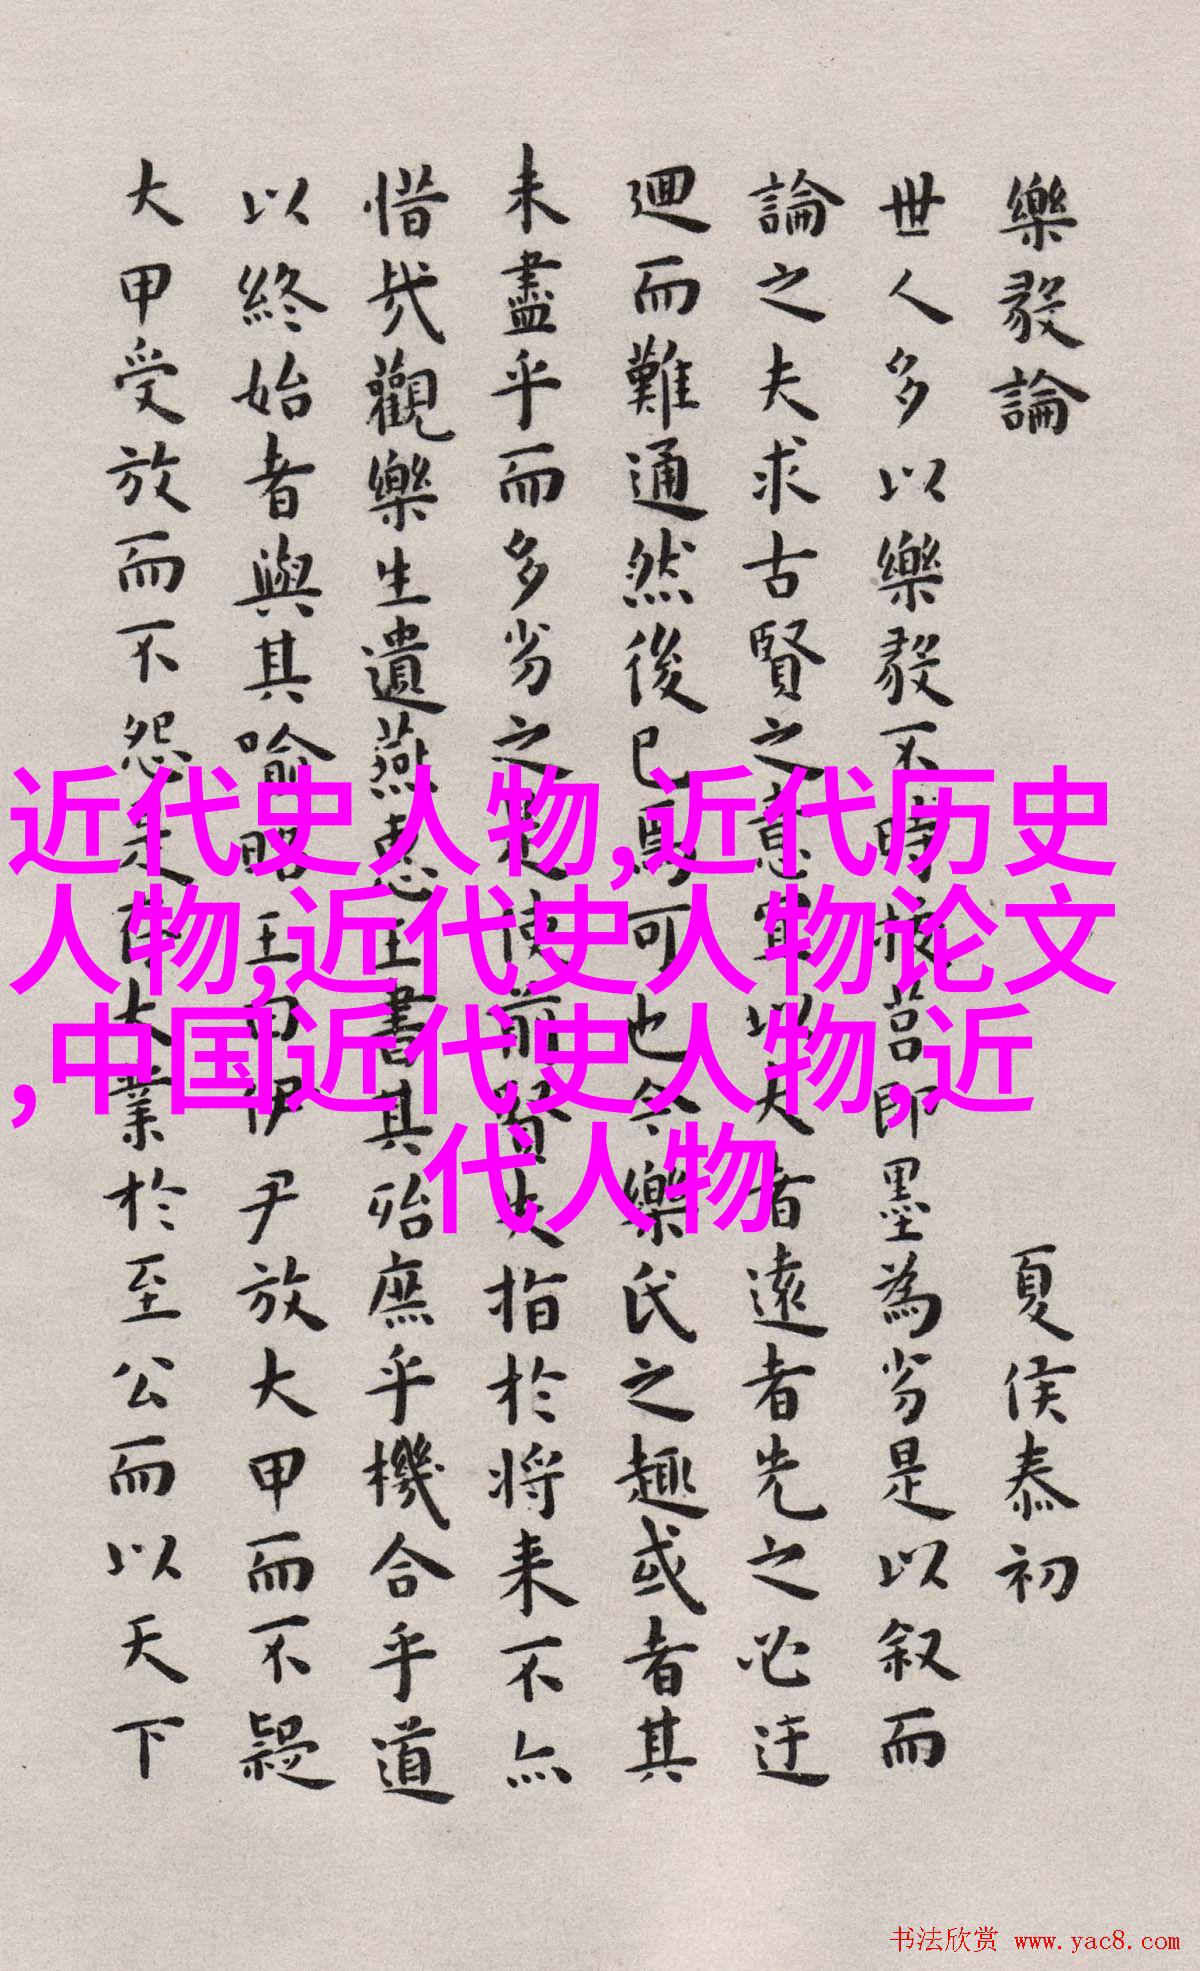 樂毅論 夏侯泰初
世人多以樂毅不時拔莒即墨為劣是以叙而
論之夫求古賢之意宜以大者遠者先之必迂
迴而難通然後已焉可也今樂氏之趣或者其
未盡乎而多劣之是使前賢失指於将来不亦
惜哉觀樂生遺燕惠王書其殆庶乎機合乎道
以終始者與其喻昭王曰伊尹放大甲而不疑
大甲受放而不怨是存大業於至公而以天下
近代史人物,近代历史
人物,近代史人物论文
,中国近代史人物,近
代人物
书法欣赏 www.yac8.com